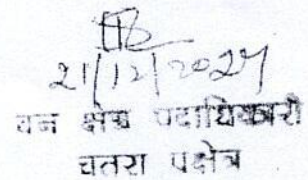 21/12/2024
वन क्षेत्र पदाधिकारी
चतरा प्रक्षेत्र